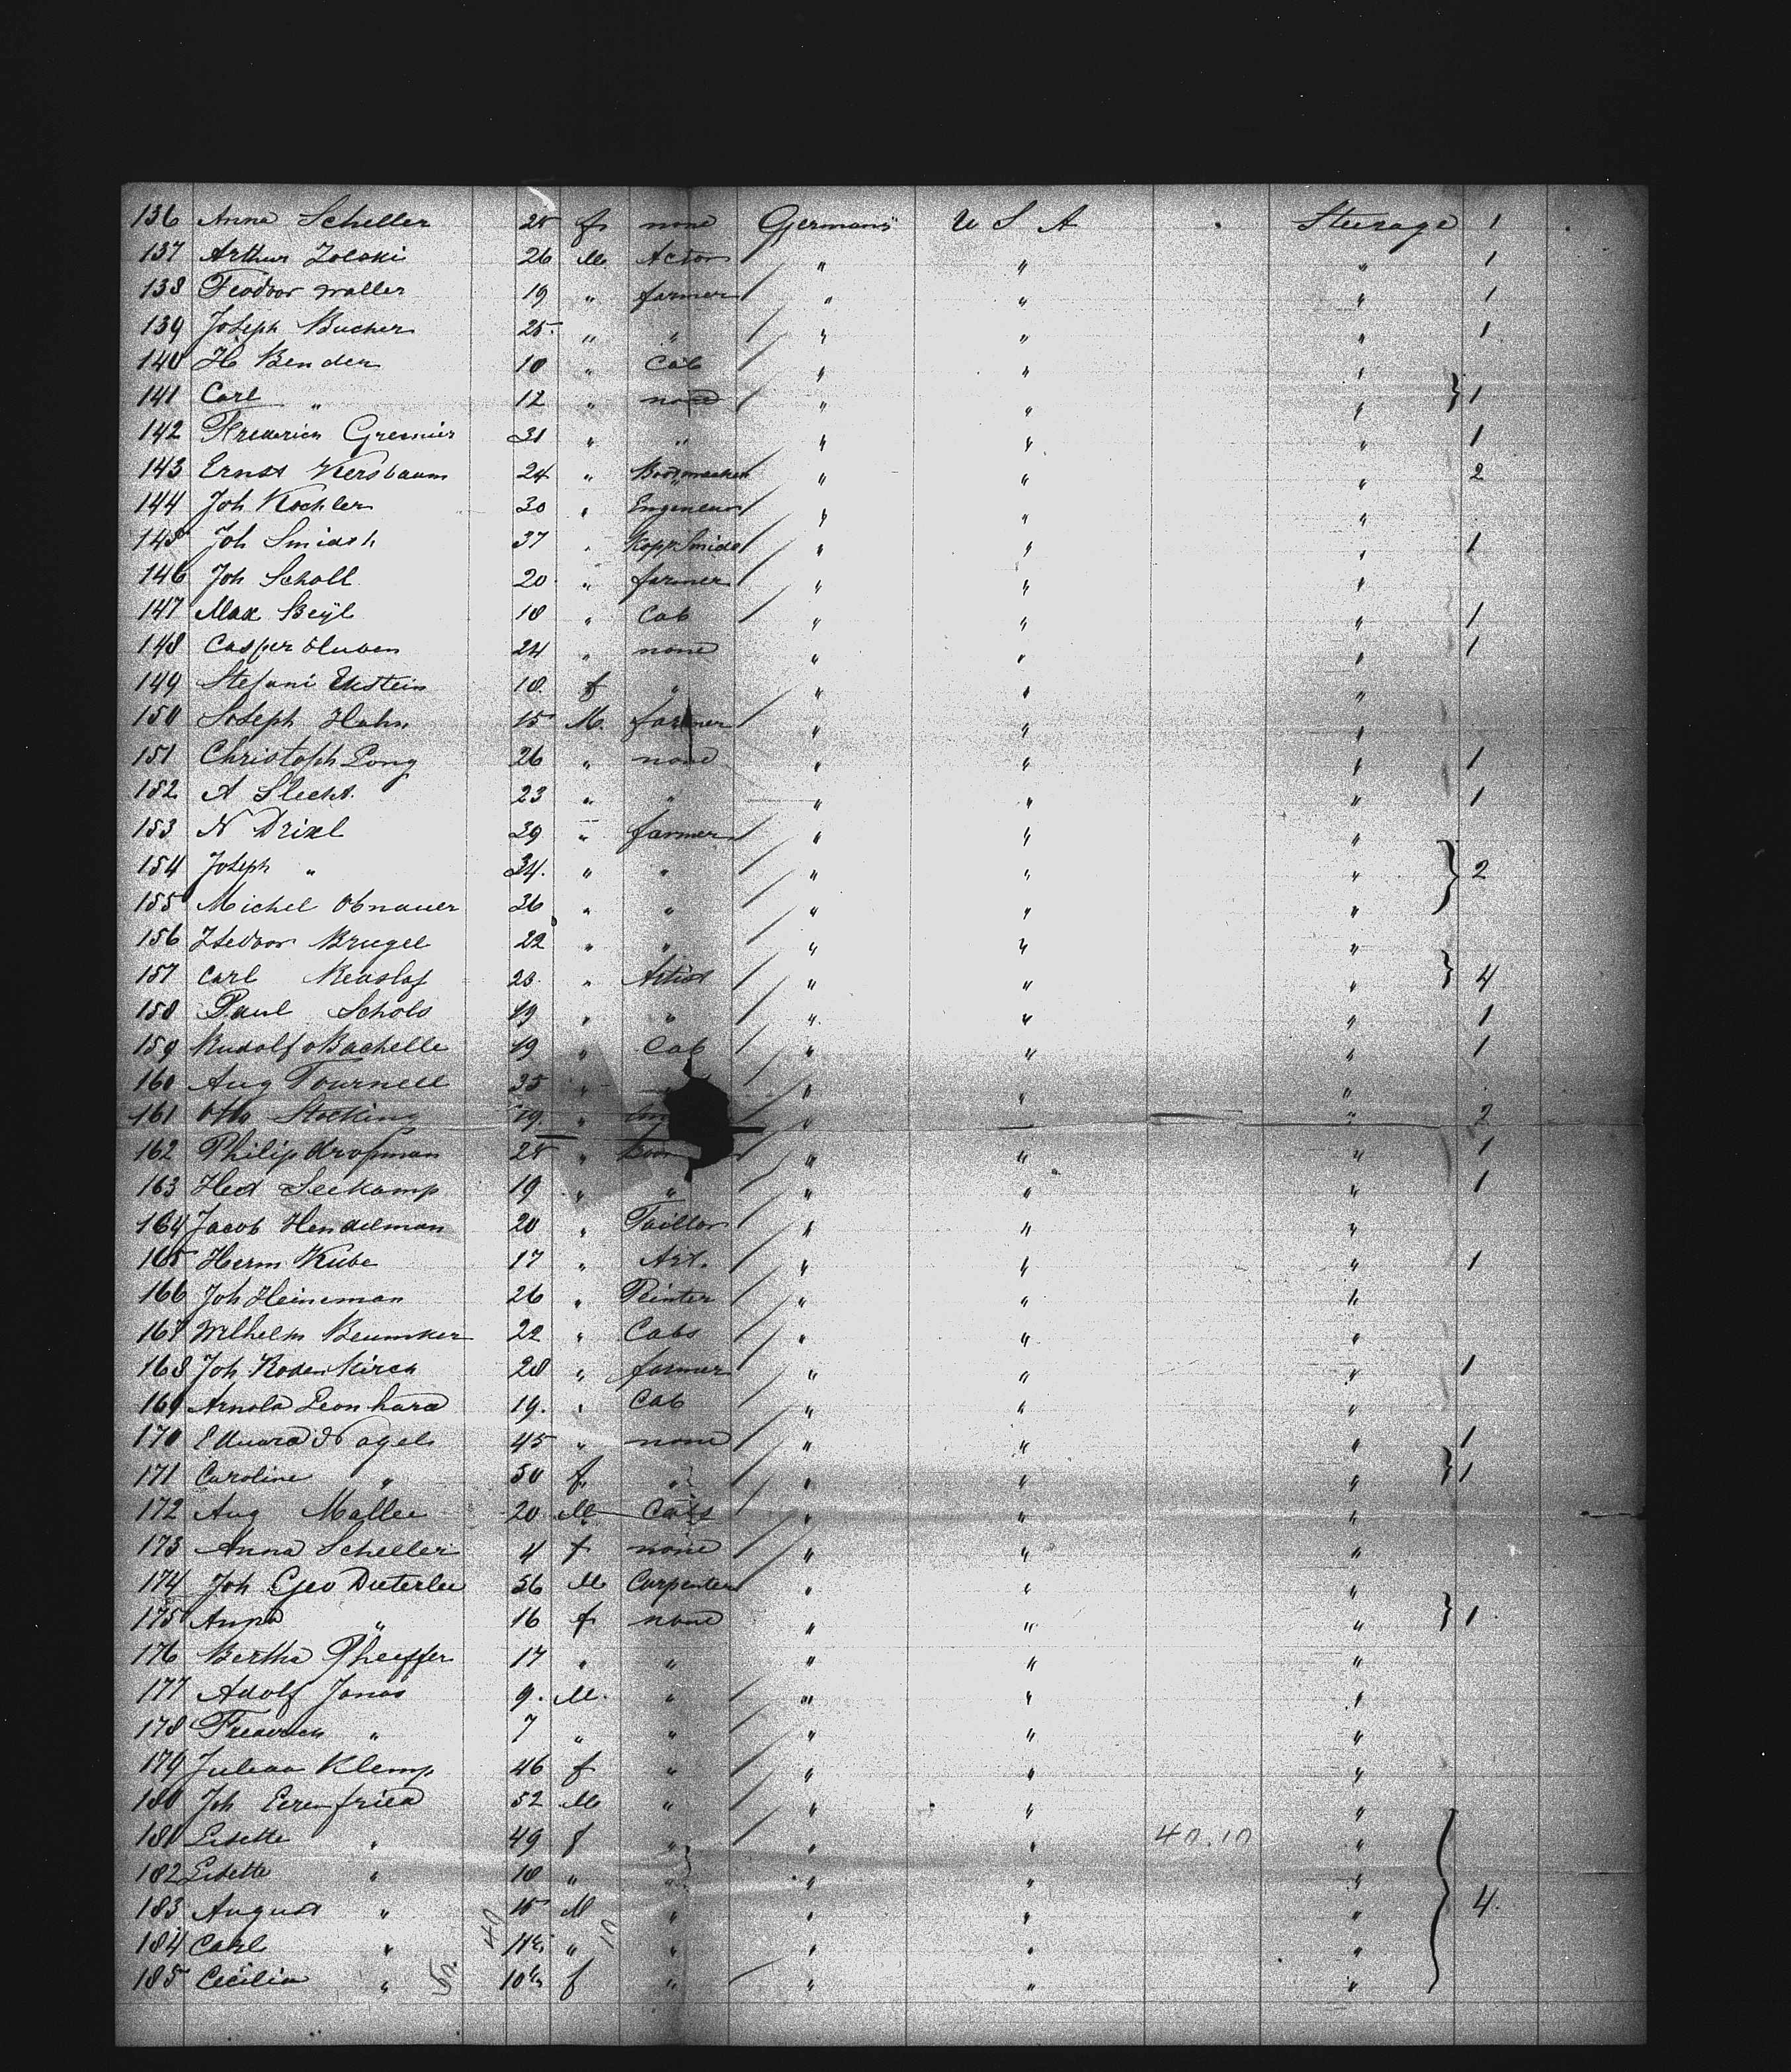 136 Anna Scheller 25 f none Germany U S A Steerage 1
137 Arthur Zoloki 26 M Actor " " " 1
138 Feodoor Waller 19 " farmer " " " 1
139 Joseph Bucher 25 " " " " " 1
140 H Bender 18 " Cab " " "
141 Carl " 12 " none " " " } 1
142 Frederich 31 " " " " " 1
143 Ernst Kersbaum 24 " Bootmaker " " " 2
144 Joh Kochler 30 " Engeneur " " "
145 Joh Smidth 37 " KoppSmidt " " " 1
146 Joh Scholl 20 " farmer " " "
147 Max Beyl 18 " Cab " " " 1
148 Casper Huben 24 " none " " " 1
149 Stefani Ekstein 18 f " " " "
150 Joseph Hahn 15 M. farmer " " "
151 Christoph Long 26 " none " " " 1
152 A Slecht. 23 " " " " " 1
153 N Drixl 39 " farmer " " "
154 Joseph " 34. " " " " " } 2
155 Michel Obnauer 36 " " " " "
156 Isedoor Brugel 22 " " " " "
157 Carl 23. " Artist " " " } 4
158 Paul Schols 19 " " " " " 1
159 Rudolf Bachelle 19 " Cab " " " 1
160 Aug Tournell 35 " " " "
161 Otto Stocking 19. " " " " 2
162 Philip Kropman 25 " " " " 1
163 Hed Seekamp 19 " " " " " 1
164 Jacob Hendelman 20 " Taillor " " "
165 Herm Kube 17 " Art. " " " 1
166 Joh Heineman 26 " Peinter " " "
167 Wilhelm Beumker 22 " Cabs " " "
168 Joh Rodenkirch 28 " farmer " " " 1
169 Arnold Leonhard 19. " Cab " " "
170 Eduard Nagels 45 " none " " " 1
171 Caroline " 50 f " " " " } 1
172 Aug Mallee 20 M Cabs " " "
173 Anna Scheller 4 f none " " "
174 Joh Geo Dieterlee 56 M Carpenter " " "
175 Anna " 16 f none " " " } 1.
176 Bertha Pheiffer 17 " " " " "
177 Adolf Jonas 9. M. " " " "
178 Frederich " 7 " " " " "
179 Juliaa Klemp 46 f " " " "
180 Joh Eerenfried 52 M " " " "
181 Lisette " 49 f " " " 40.10 "
182 Lisette " 18 " " " " "
183 August " 15 M " " " " } 4.
184 Carl " 11 " " " " "
185 Cecilia " 10 f " " " "
40
10
50.